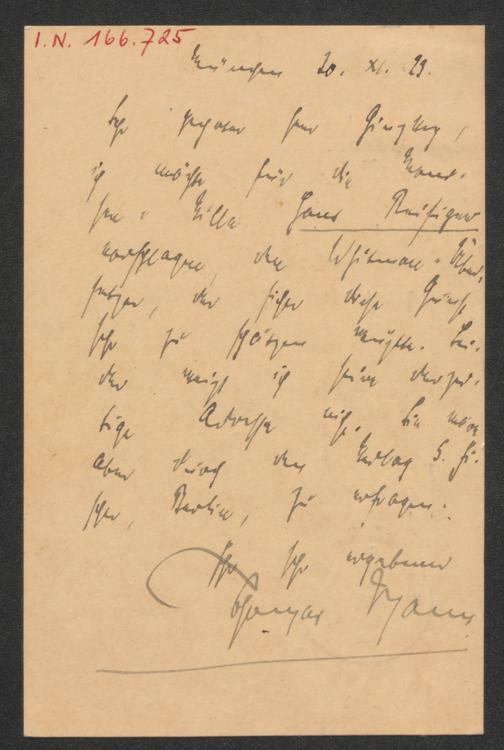 I.N. 166.725
München 20. XI. 23.
Sehr geehrter Herr Ginzkey,
ich möchte für die Mond-
see-Villa Hans Reisiger
vorschlagen, den Whitman-Über-
setzer, der sicher diese Gunst
sehr zu schätzen wüßte. Lei-
der weiß ich seine derzei-
tige Adresse nicht. Sie wäre
aber durch den Verlag S. Fi-
scher, Berlin, zu erfragen.
Ihr sehr ergebener
Thomas Mann